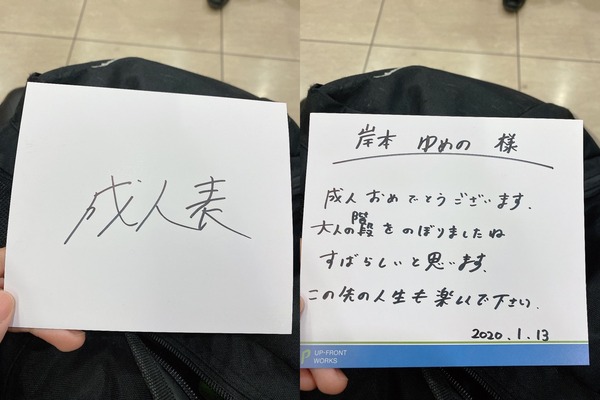 成人表
岸本 ゆめの 様
成人おめでとうございます.
大人の階段をのぼりましたね
すばらしいと思います.
この先の人生も楽しんで下さい.
2020.1.13
UP-FRONT
WORKS